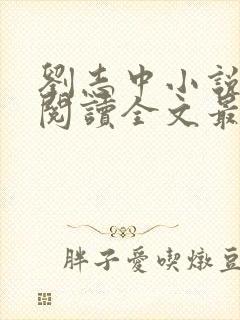 劉志中小說
閱讀全文最
胖子愛喫燉豆